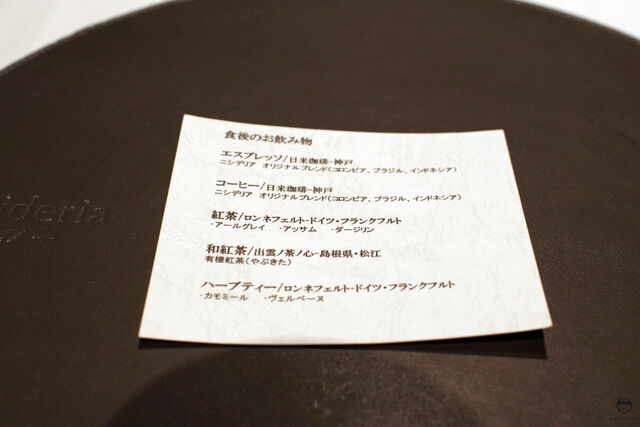 食後のお飲み物
エスプレッソ/日米珈琲-神戸
ニシデリア オリジナルブレンド(コロンビア、ブラジル、インドネシア)
コーヒー/日米珈琲-神戸
ニシデリア オリジナルブレンド(コロンビア、ブラジル、インドネシア)
紅茶/ロンネフェルト-ドイツ・フランクフルト
・アールグレイ ・アッサム ・ダージリン
和紅茶/出雲ノ茶ノ心-島根県・松江
有機紅茶(やぶきた)
ハーブティー/ロンネフェルト-ドイツ・フランクフルト
・カモミール ・ヴェルベーヌ
ideria